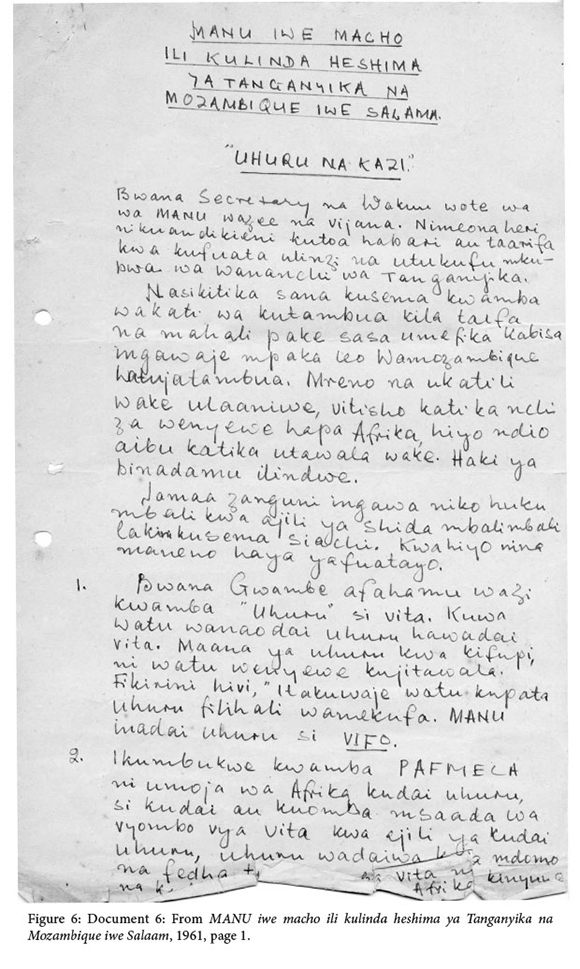 MANU IWE MACHO
ILI KULINDA HESHIMA
YA TANGANYIKA NA
MOZAMBIQUE IWE SALAMA.
"UHURU NA KAZI."
Bwana Secretary na Wakuu wote wa
wa MANU wazee na vijana. Nimeona heri
nikuandikieni kutoa habari au taarifa
kwa kufuata ulinzi na utukufu mku-
bwa wa wananchi wa Tanganyika.
Nasikitika sana kusema kwamba
wakati wa kutambua kila taifa
na mahali pake sasa umefika kabisa
ingawaje mpaka leo Wamozambique
hatujatambua. Mreno na ukatili
wake ulaaniwe, vitisho katika nchi
za wenyewe hapa Afrika, hiyo ndio
aibu katika utawala wake. Haki ya
binadamu ilindwe.
Jamaa zanguni ingawa niko huku
mbali kwa ajili ya shida mbalimbali
lakini kusema siachi. Kwahiyo nina
maneno haya yafuatayo.
1. Bwana Gwambe afahamu wazi
kwamba "Uhuru" si vita. Kuwa
watu wanaodai uhuru hawadai
vita. Maana ya uhuru kwa kifupi,
ni watu wenyewe kujitawala.
Fikirini hivi, "Itakuwaje watu kupata
uhuru filihali wamekufa. MANU
inadai uhuru si VIFO.
2. Ikumbukwe kwamba PAFMECA
ni umoja wa Afrika kudai uhuru,
si kudai au kuomba msaada wa
vyombo vya vita kwa ajili ya kudai
uhuru, uhuru wadaiwa mdomo
na fedha vita ni
na Afrika kinyume
Figure 6: Document 6: From MANU iwe macho ili kulinda heshima ya Tanganyika na
Mozambique iwe Salaam, 1961, page 1.